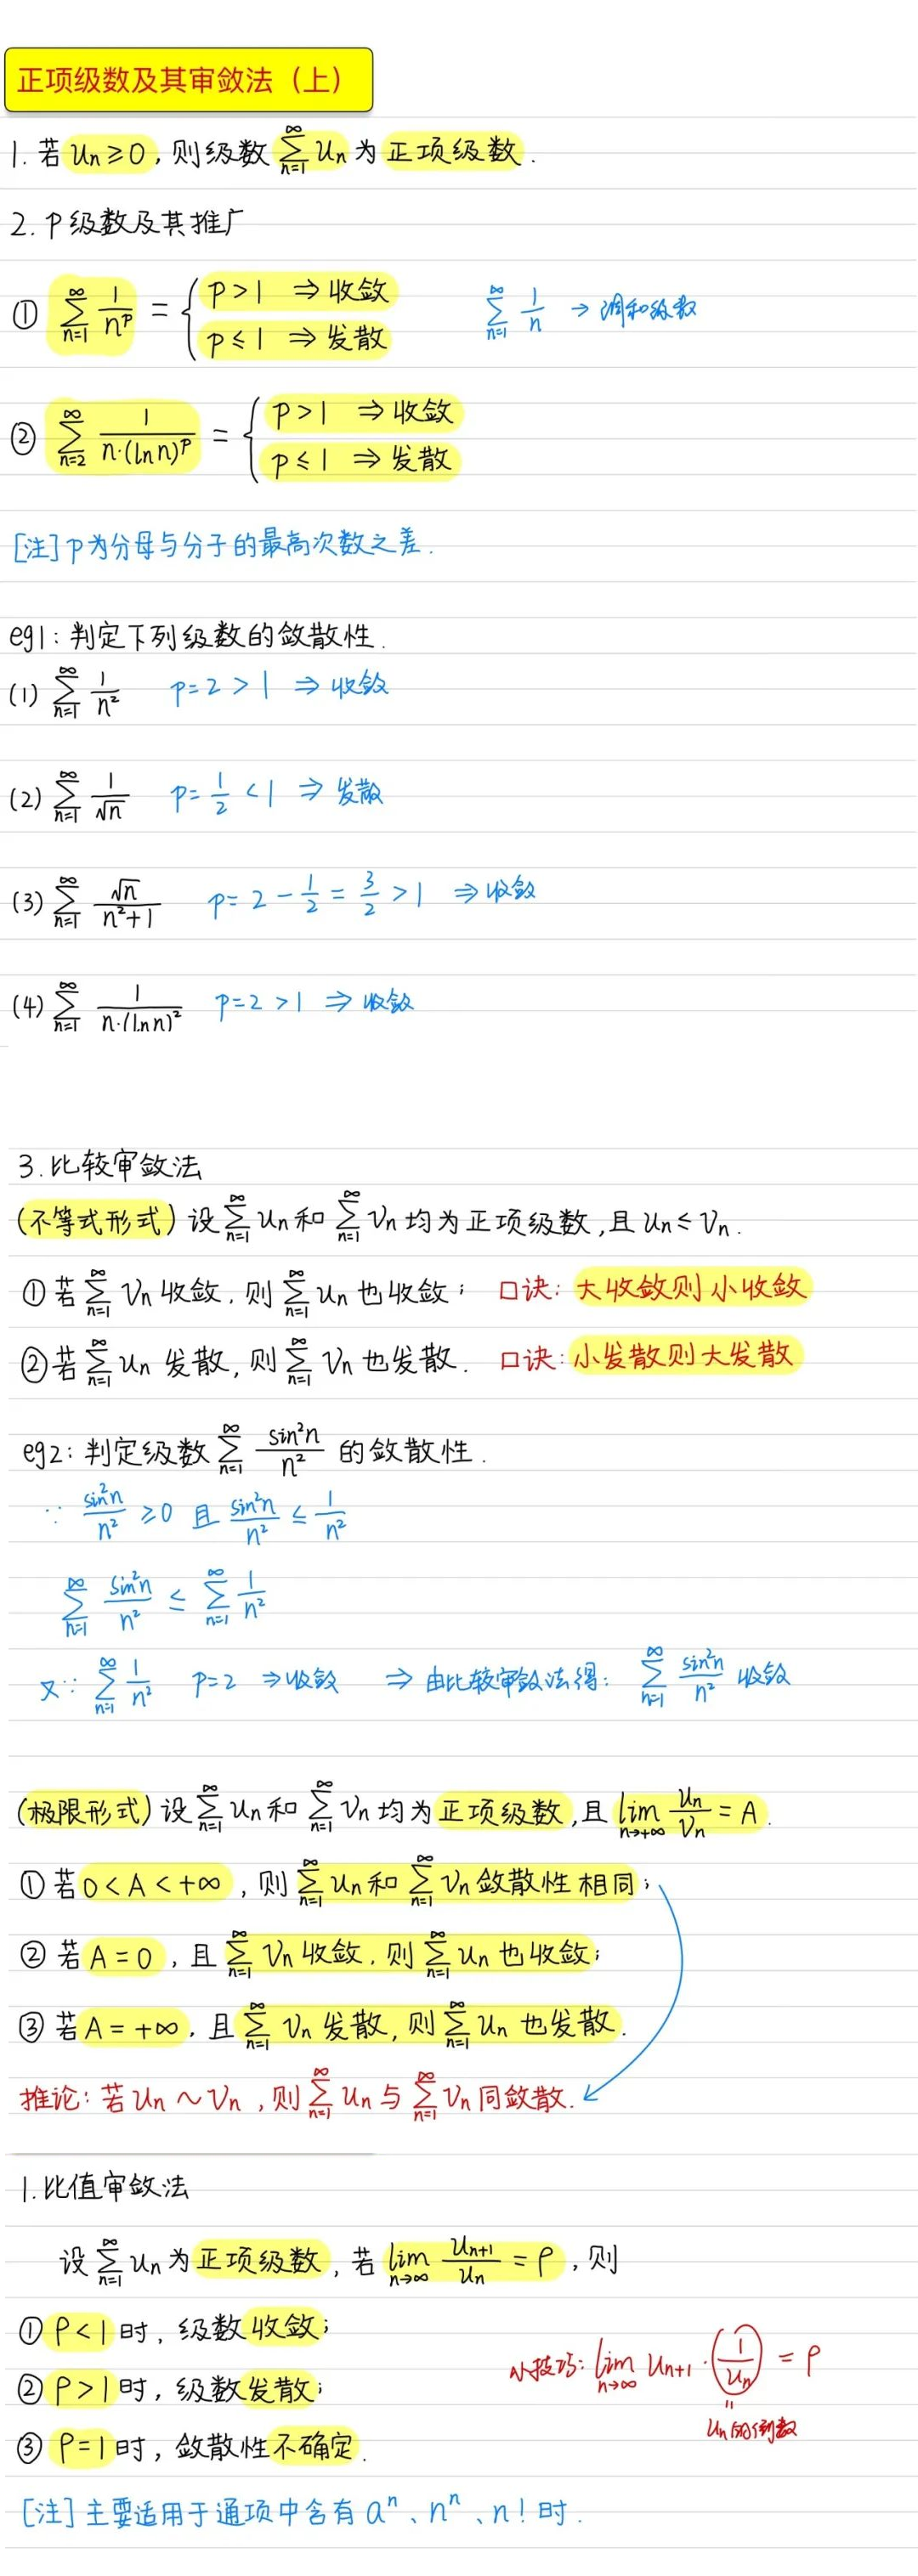 正项级数及其审敛法（上）
1. 若 uₙ ≥ 0, 则级数 ∑_{n=1}^{∞} uₙ 为 正项级数.
2. P级数及其推广
① ∑_{n=1}^{∞} 1/n^p = { p > 1 ⇒ 收敛
p ≤ 1 ⇒ 发散
∑_{n=1}^{∞} 1/n → 调和级数
② ∑_{n=2}^{∞} 1/(n·(ln n)^p) = { p > 1 ⇒ 收敛
p ≤ 1 ⇒ 发散
[注] p为分母与分子的最高次数之差.
eg1: 判定下列级数的敛散性.
(1) ∑_{n=1}^{∞} 1/n² p = 2 > 1 ⇒ 收敛
(2) ∑_{n=1}^{∞} 1/√n p = 1/2 < 1 ⇒ 发散
(3) ∑_{n=1}^{∞} √n/(n²+1) p = 2 - 1/2 = 3/2 > 1 ⇒ 收敛
(4) ∑_{n=1}^{∞} 1/(n·(ln n)²) p = 2 > 1 ⇒ 收敛
3. 比较审敛法
(不等式形式) 设 ∑_{n=1}^{∞} uₙ 和 ∑_{n=1}^{∞} vₙ 均为正项级数, 且 uₙ ≤ vₙ.
① 若 ∑_{n=1}^{∞} vₙ 收敛, 则 ∑_{n=1}^{∞} uₙ 也收敛; 口诀: 大收敛则小收敛
② 若 ∑_{n=1}^{∞} uₙ 发散, 则 ∑_{n=1}^{∞} vₙ 也发散. 口诀: 小发散则大发散
eg2: 判定级数 ∑_{n=1}^{∞} sin²n/n² 的敛散性.
∵ sin²n/n² ≥ 0 且 sin²n/n² ≤ 1/n²
∑_{n=1}^{∞} sin²n/n² ≤ ∑_{n=1}^{∞} 1/n²
又∵ ∑_{n=1}^{∞} 1/n² p = 2 ⇒ 收敛 ⇒ 由比较审敛法得: ∑_{n=1}^{∞} sin²n/n² 收敛
(极限形式) 设 ∑_{n=1}^{∞} uₙ 和 ∑_{n=1}^{∞} vₙ 均为正项级数, 且 lim_{n→+∞} uₙ/vₙ = A.
① 若 0 < A < +∞, 则 ∑_{n=1}^{∞} uₙ 和 ∑_{n=1}^{∞} vₙ 敛散性相同;
② 若 A = 0, 且 ∑_{n=1}^{∞} vₙ 收敛, 则 ∑_{n=1}^{∞} uₙ 也收敛;
③ 若 A = +∞, 且 ∑_{n=1}^{∞} vₙ 发散, 则 ∑_{n=1}^{∞} uₙ 也发散.
推论: 若 uₙ ~ vₙ, 则 ∑_{n=1}^{∞} uₙ 与 ∑_{n=1}^{∞} vₙ 同敛散.
1. 比值审敛法
设 ∑_{n=1}^{∞} uₙ 为正项级数, 若 lim_{n→∞} uₙ₊₁/uₙ = ρ, 则
① ρ < 1 时, 级数收敛;
② ρ > 1 时, 级数发散;
小技巧: lim_{n→∞} uₙ₊₁ · (1/uₙ) = ρ
"
uₙ的倒数
③ ρ = 1 时, 敛散性不确定.
[注] 主要适用于通项中含有 aⁿ、nⁿ、n! 时.